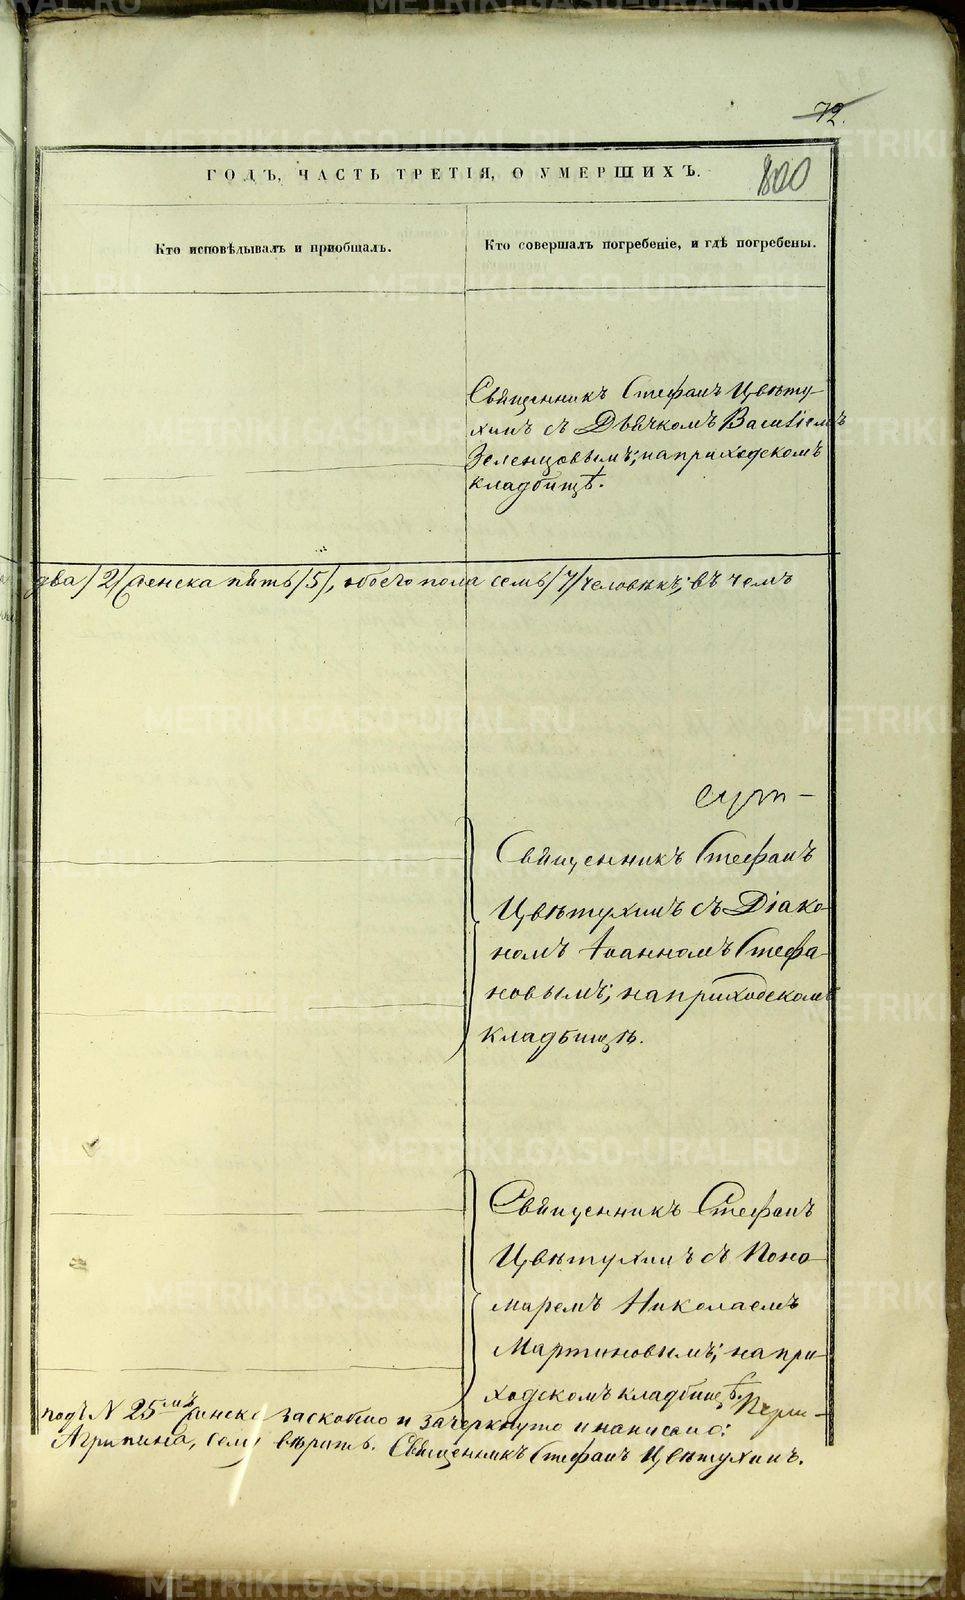 72.
800
ГОДЪ, ЧАСТЬ ТРЕТІЯ, О УМЕРШИХЪ.
Кто исповѣдывалъ и пріобщалъ.
Кто совершалъ погребеніе, и гдѣ погребены.
Священникъ Стефанъ Цвѣту-
хинъ съ Дьячкомъ Василіемъ
Зеленцовымъ; на приходскомъ
кладбищѣ.
два /2/ женска пять /5/, обоего пола семь /7/ человѣкъ; въ чемъ
Священникъ Стефанъ
Цвѣтухинъ съ Діако-
номъ Іоанномъ Стефа-
новымъ; на приходскомъ
кладбищѣ.
Священникъ Стефанъ
Цвѣтухинъ съ Поно-
маремъ Николаемъ
Мартиновымъ; на при-
ходскомъ кладбищѣ.
подъ N 25мъ женска заскоблено и зачеркнуто и написано:
Агрипина, сему вѣрить. Священникъ Стефанъ Цвѣтухинъ.
METRIKI.GASO-URAL.RU